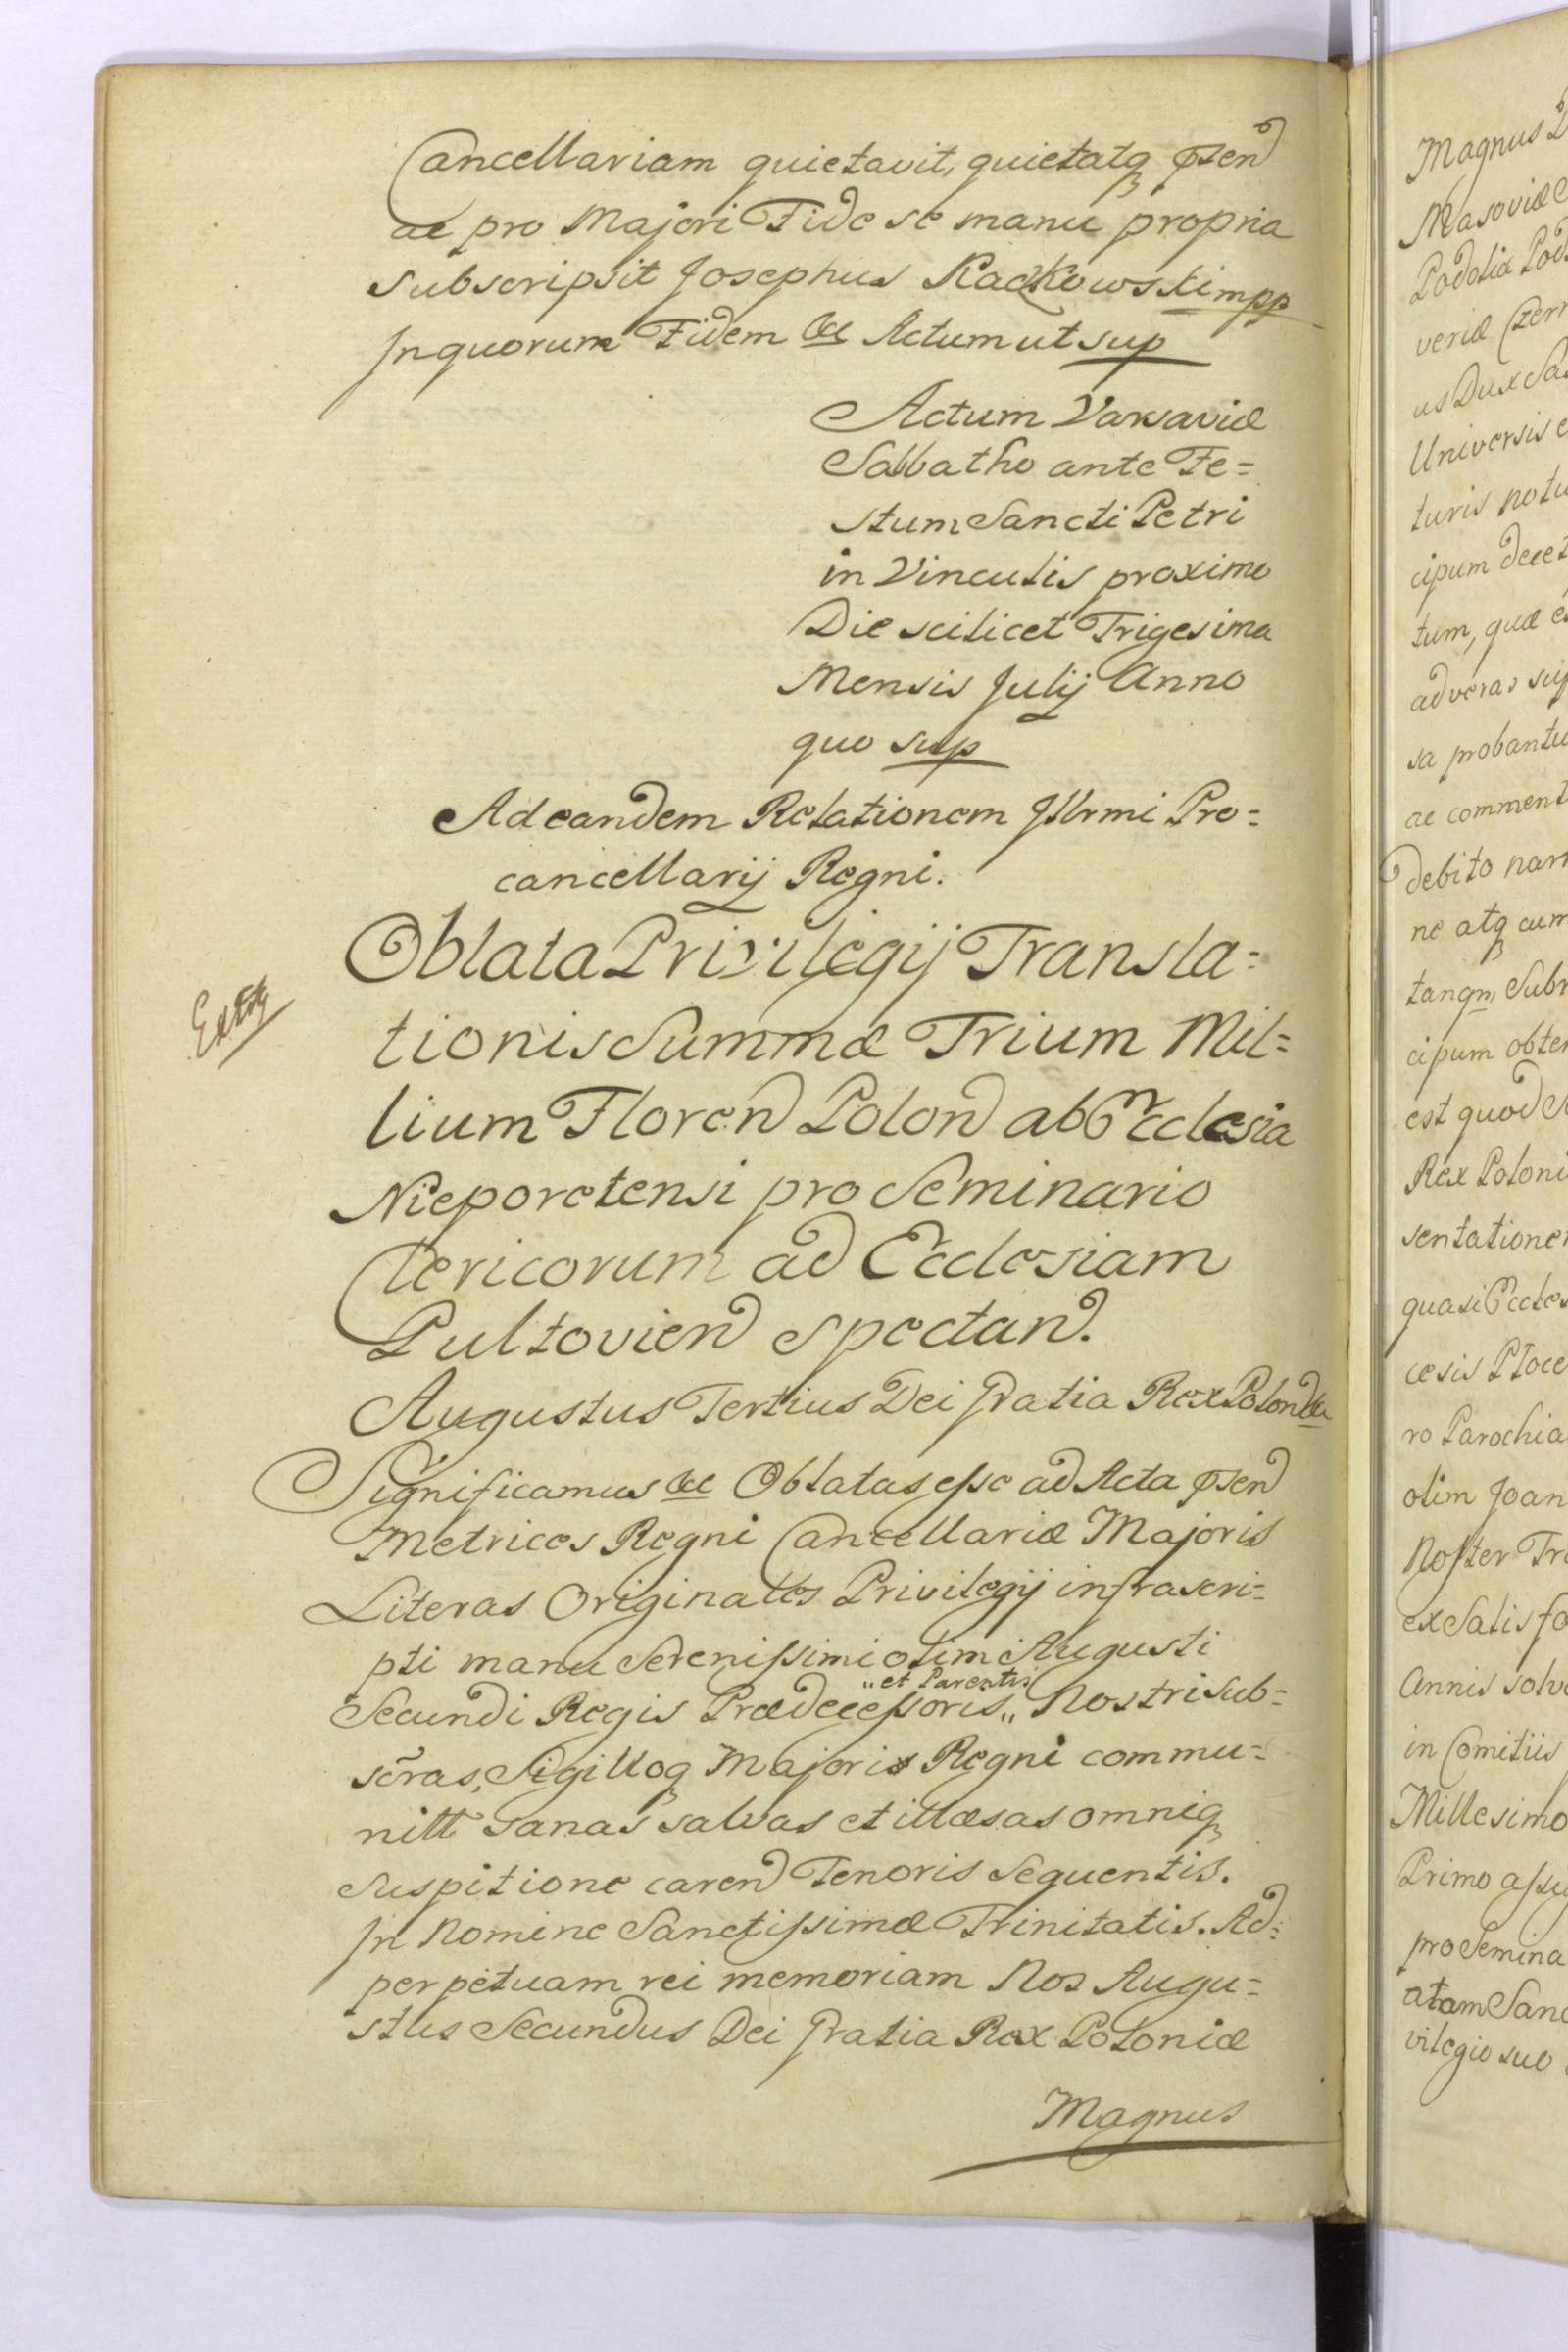 Cancellariam quietavit, quietatq̃ pñsen
ac pro Majori Fide se manu propria
subscripsit Josephus Raczkowski mpp
In quorum Fidem &c Actum ut sup
Actum Varsaviæ
Sabbatho ante Fe=
stum Sancti Petri
in Vinculis proximo
Die scilicet Trigesima
Mensis Julij Anno
quo sup
Ad eandem Relationem Jllrmi Pro=
cancellarij Regni.
Oblata Privilegij Transla=
tionis Summæ Trium Mil=
lium Floren Polon ab Ecclesia
Nieporetensi pro Seminario
Clericorum ad Ecclesiam
Pultovien spectan.
Augustus Tertius Dei Gratia Rex Polon &c
Significamus &c Oblatas eſse ad Acta pñsen
Metrices Regni Cancellariæ Majoris
Literas Originales Privilegij infrascri=
pti manu Sereniſsimi olim Augusti
Secundi Regis Prædeceſsoris „et Parentis„ Nostri sub=
scr̃as, Sigilloq̃ Majoris Regni commu=
nitt sanas salvas et illæsas omniq̃
suspitione caren Tenoris Sequentis.
In Nomine Sanctiſsimæ Trinitatis. Ad=
perpetuam rei memoriam Nos Augu=
stus Secundus Dei Gratia Rex Poloniæ
Magnus
Magnus
Masoviæ
Podoliæ
veriæ Czern
us Dux Sa
Universis
turis notu
cipum decet
tum, quæ
ad veras sup
sa probantu
ac comment
debito nam
ne atq̃ cum
tanqm Subr
cipum obten
est quod
Rex Poloni
sentatione
quasi Eccles
cesis Ploce
ro Parochia
olim Joan
Noſter Tr
ex Satisfa
Annis solv
in Comitiis
Millesimo
Primo aſsu
pro Semina
atam Sanc
vilegio suo